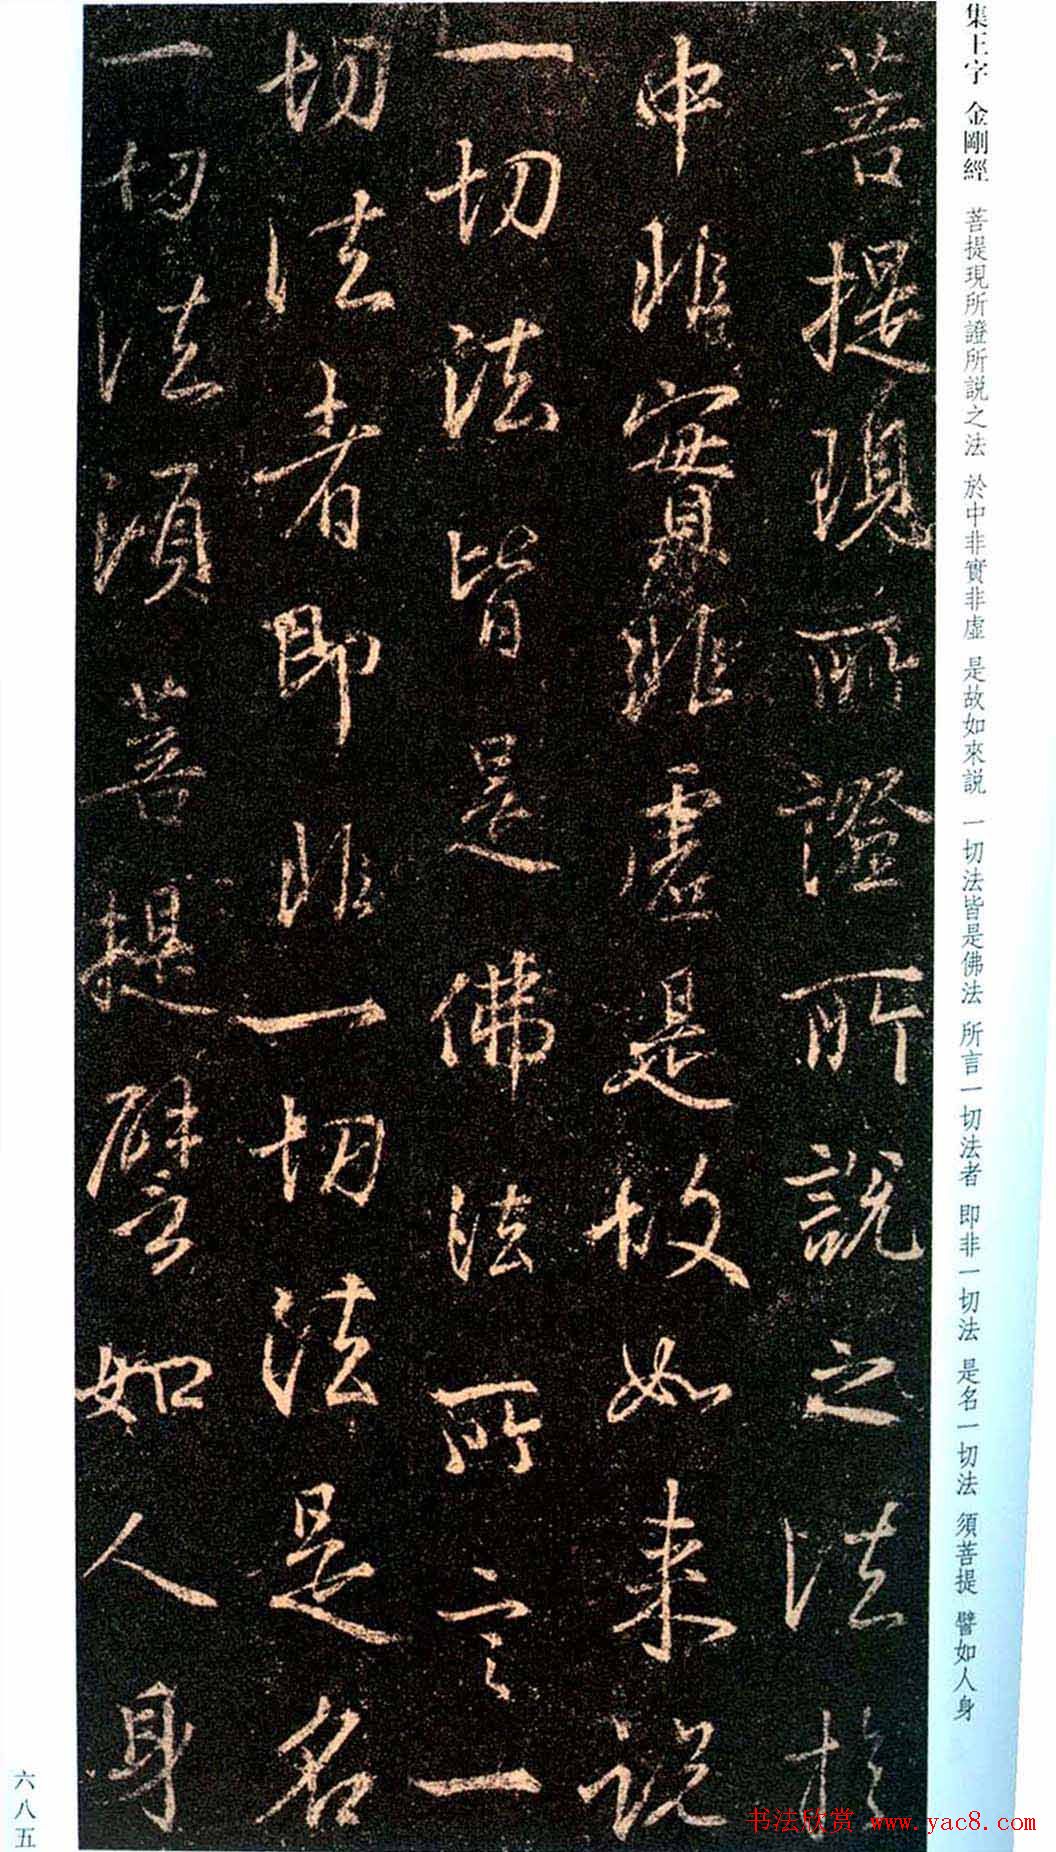 集王字 金剛經 菩提現所證所説之法 於中非實非虛 是故如來説 一切法皆是佛法 所言一切法者 即非一切法 是名一切法 須菩提 譬如人身
菩提現所證所說之法於
中非實非虛是故如来説
一切法皆是佛法所言一
切法者即非一切法是名
一切法須菩提譬如人身
六八五
书法欣赏 www.yac8.com